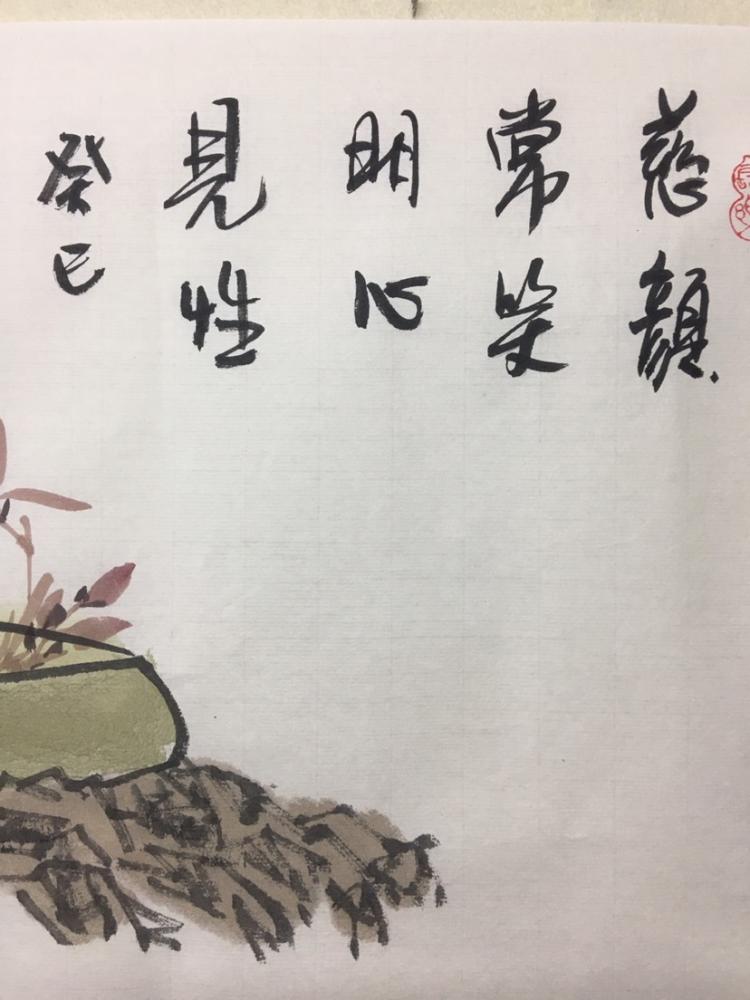 慈顏
常笑
明心
見性
癸巳